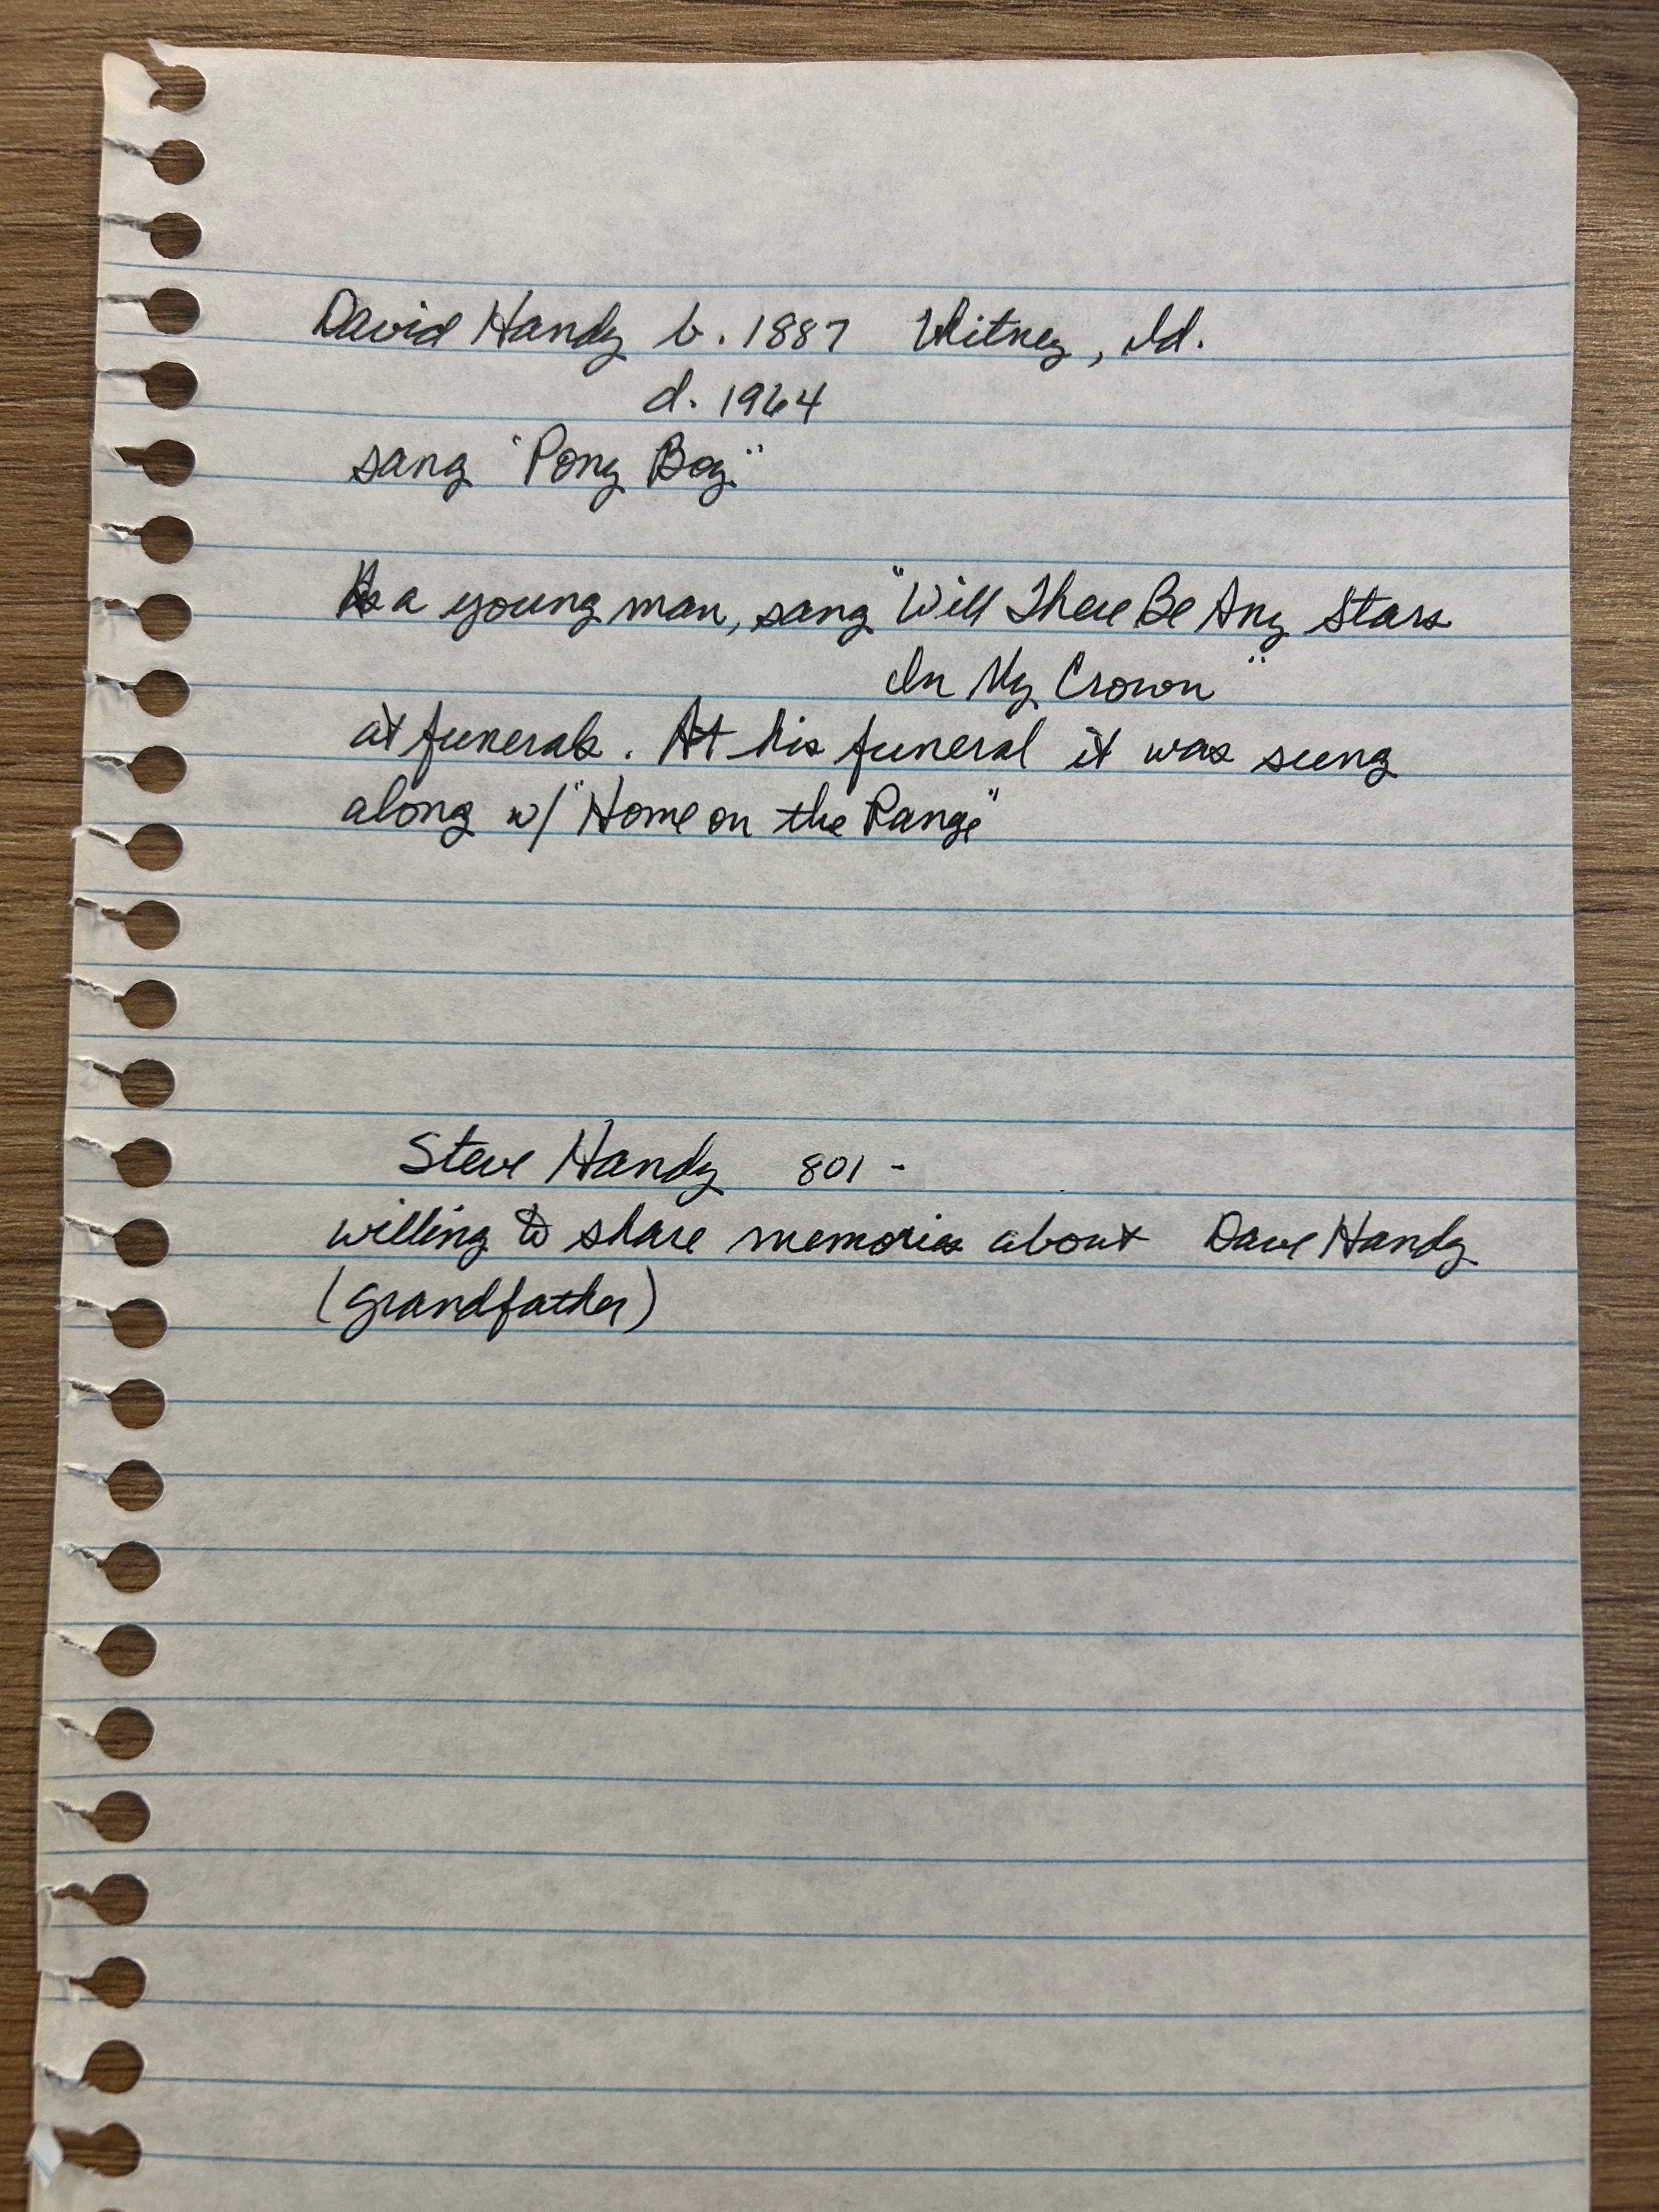 David Handy b. 1887 Whitney, Id.
d. 1964
sang "Pony Boy"
As a young man, sang "Will There Be Any Stars
In My Crown"
at funerals. At his funeral it was sung
along w/ "Home on the Range"
Steve Handy 801 -
willing to share memories about Dave Handy
(grandfather)